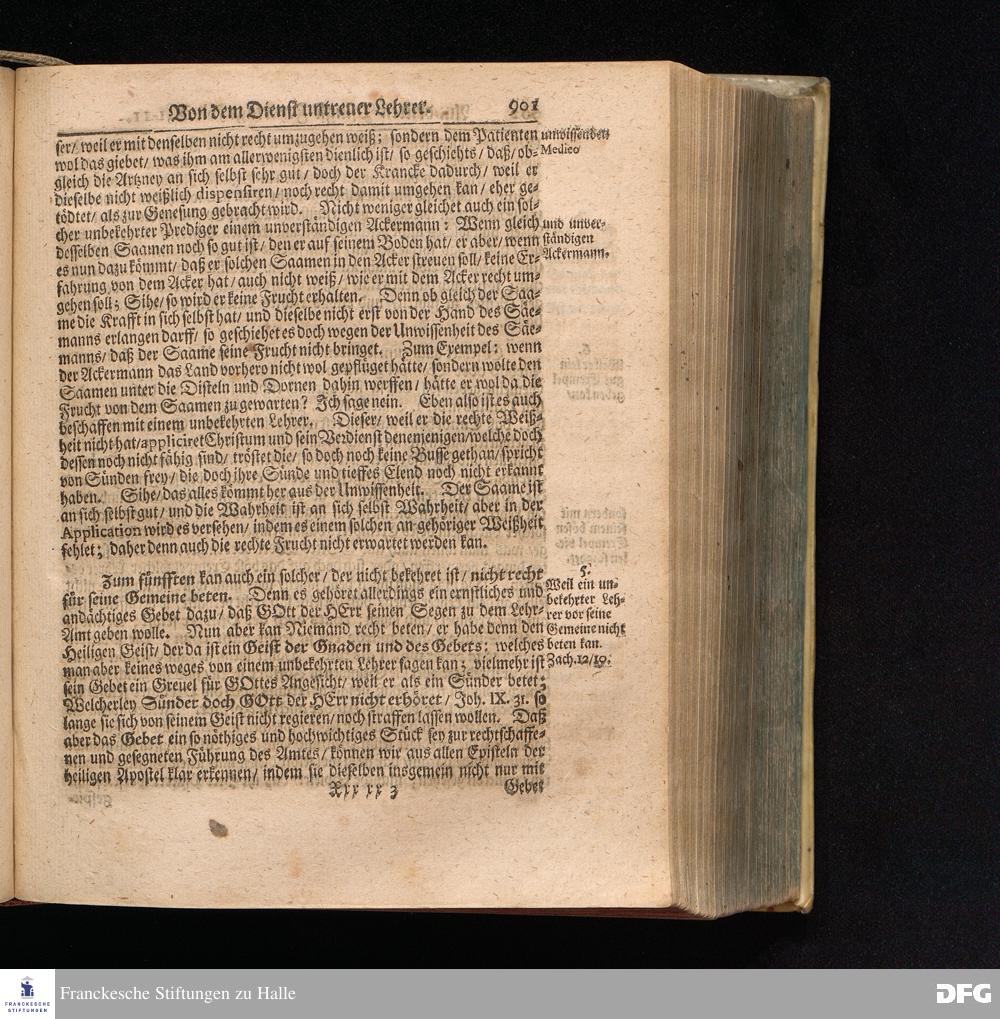 Von dem Dienst untreuer Lehrer. 901
ser/ weil er mit denselben nicht recht umzugehen weiß; sondern dem Patienten
wol das giebet/ was ihm am allerwenigsten dienlich ist/ so geschiehts/ daß/ ob-
gleich die Artzney an sich selbst sehr gut/ doch der Krancke dadurch/ weil er
dieselbe nicht weißlich dispensiren/ noch recht damit umgehen kan/ eher ge-
tödtet/ als zur Genesung gebracht wird. Nicht weniger gleichet auch ein sol-
cher unbekehrter Prediger einem unverständigen Ackermann: Wenn gleich
desselben Saamen noch so gut ist/ den er auf seinem Boden hat/ er aber/ wenn
es nun dazu kömmt/ daß er solchen Saamen in den Acker streuen soll/ keine Er-
fahrung von dem Acker hat/ auch nicht weiß/ wie er mit dem Acker recht um-
gehen soll; Sihe/ so wird er keine Frucht erhalten. Denn ob gleich der Saa-
me die Krafft in sich selbst hat/ und dieselbe nicht erst von der Hand des Säe-
manns erlangen darff/ so geschiehet es doch wegen der Unwissenheit des Säe-
manns/ daß der Saame seine Frucht nicht bringet. Zum Exempel: wenn
der Ackermann das Land vorhero nicht wol gepflüget hätte/ sondern wolte den
Saamen unter die Disteln und Dornen dahin werffen/ hätte er wol da die
Frucht von dem Saamen zu gewarten? Ich sage nein. Eben also ist es auch
beschaffen mit einem unbekehrten Lehrer. Dieser/ weil er die rechte Weiß-
heit nicht hat/ appliciret Christum und sein Verdienst denenjenigen/ welche doch
dessen noch nicht fähig sind/ tröstet die/ so doch noch keine Busse gethan/ spricht
von Sünden frey/ die doch ihre Sünde und tieffes Elend noch nicht erkannt
haben. Sihe/ das alles kömmt her aus der Unwissenheit. Der Saame ist
an sich selbst gut/ und die Wahrheit ist an sich selbst Wahrheit/ aber in der
Application wird es versehen/ indem es einem solchen an gehöriger Weißheit
fehlet; daher denn auch die rechte Frucht nicht erwartet werden kan.
unwissenden
Medico
und unver-
ständigen
Ackermann.
Zum fünfften kan auch ein solcher/ der nicht bekehret ist/ nicht recht
für seine Gemeine beten. Denn es gehöret allerdings ein ernstliches und
andächtiges Gebet dazu/ daß GOtt der HErr seinen Segen zu dem Lehr-
Amt geben wolle. Nun aber kan Niemand recht beten/ er habe denn den
Heiligen Geist/ der da ist ein Geist der Gnaden und des Gebets: welches
man aber keines weges von einem unbekehrten Lehrer sagen kan; vielmehr ist
sein Gebet ein Greuel für GOttes Angesicht/ weil er als ein Sünder betet:
Welcherley Sünder doch GOtt der HErr nicht erhöret/ Joh. IX. 31. so
lange sie sich von seinem Geist nicht regieren/ noch straffen lassen wollen. Daß
aber das Gebet ein so nöthiges und hochwichtiges Stück sey zur rechtschaffe-
nen und gesegneten Führung des Amtes/ können wir aus allen Episteln der
heiligen Apostel klar erkennen/ indem sie dieselben insgemein nicht nur mit
5.
Weil ein un-
bekehrter Leh-
rer vor seine
Gemeine nicht
beten kan.
Zach. 12/10.
Xxx xx 3 Gebet
FRANCKESCHE
STIFTUNGEN
Franckesche Stiftungen zu Halle
DFG